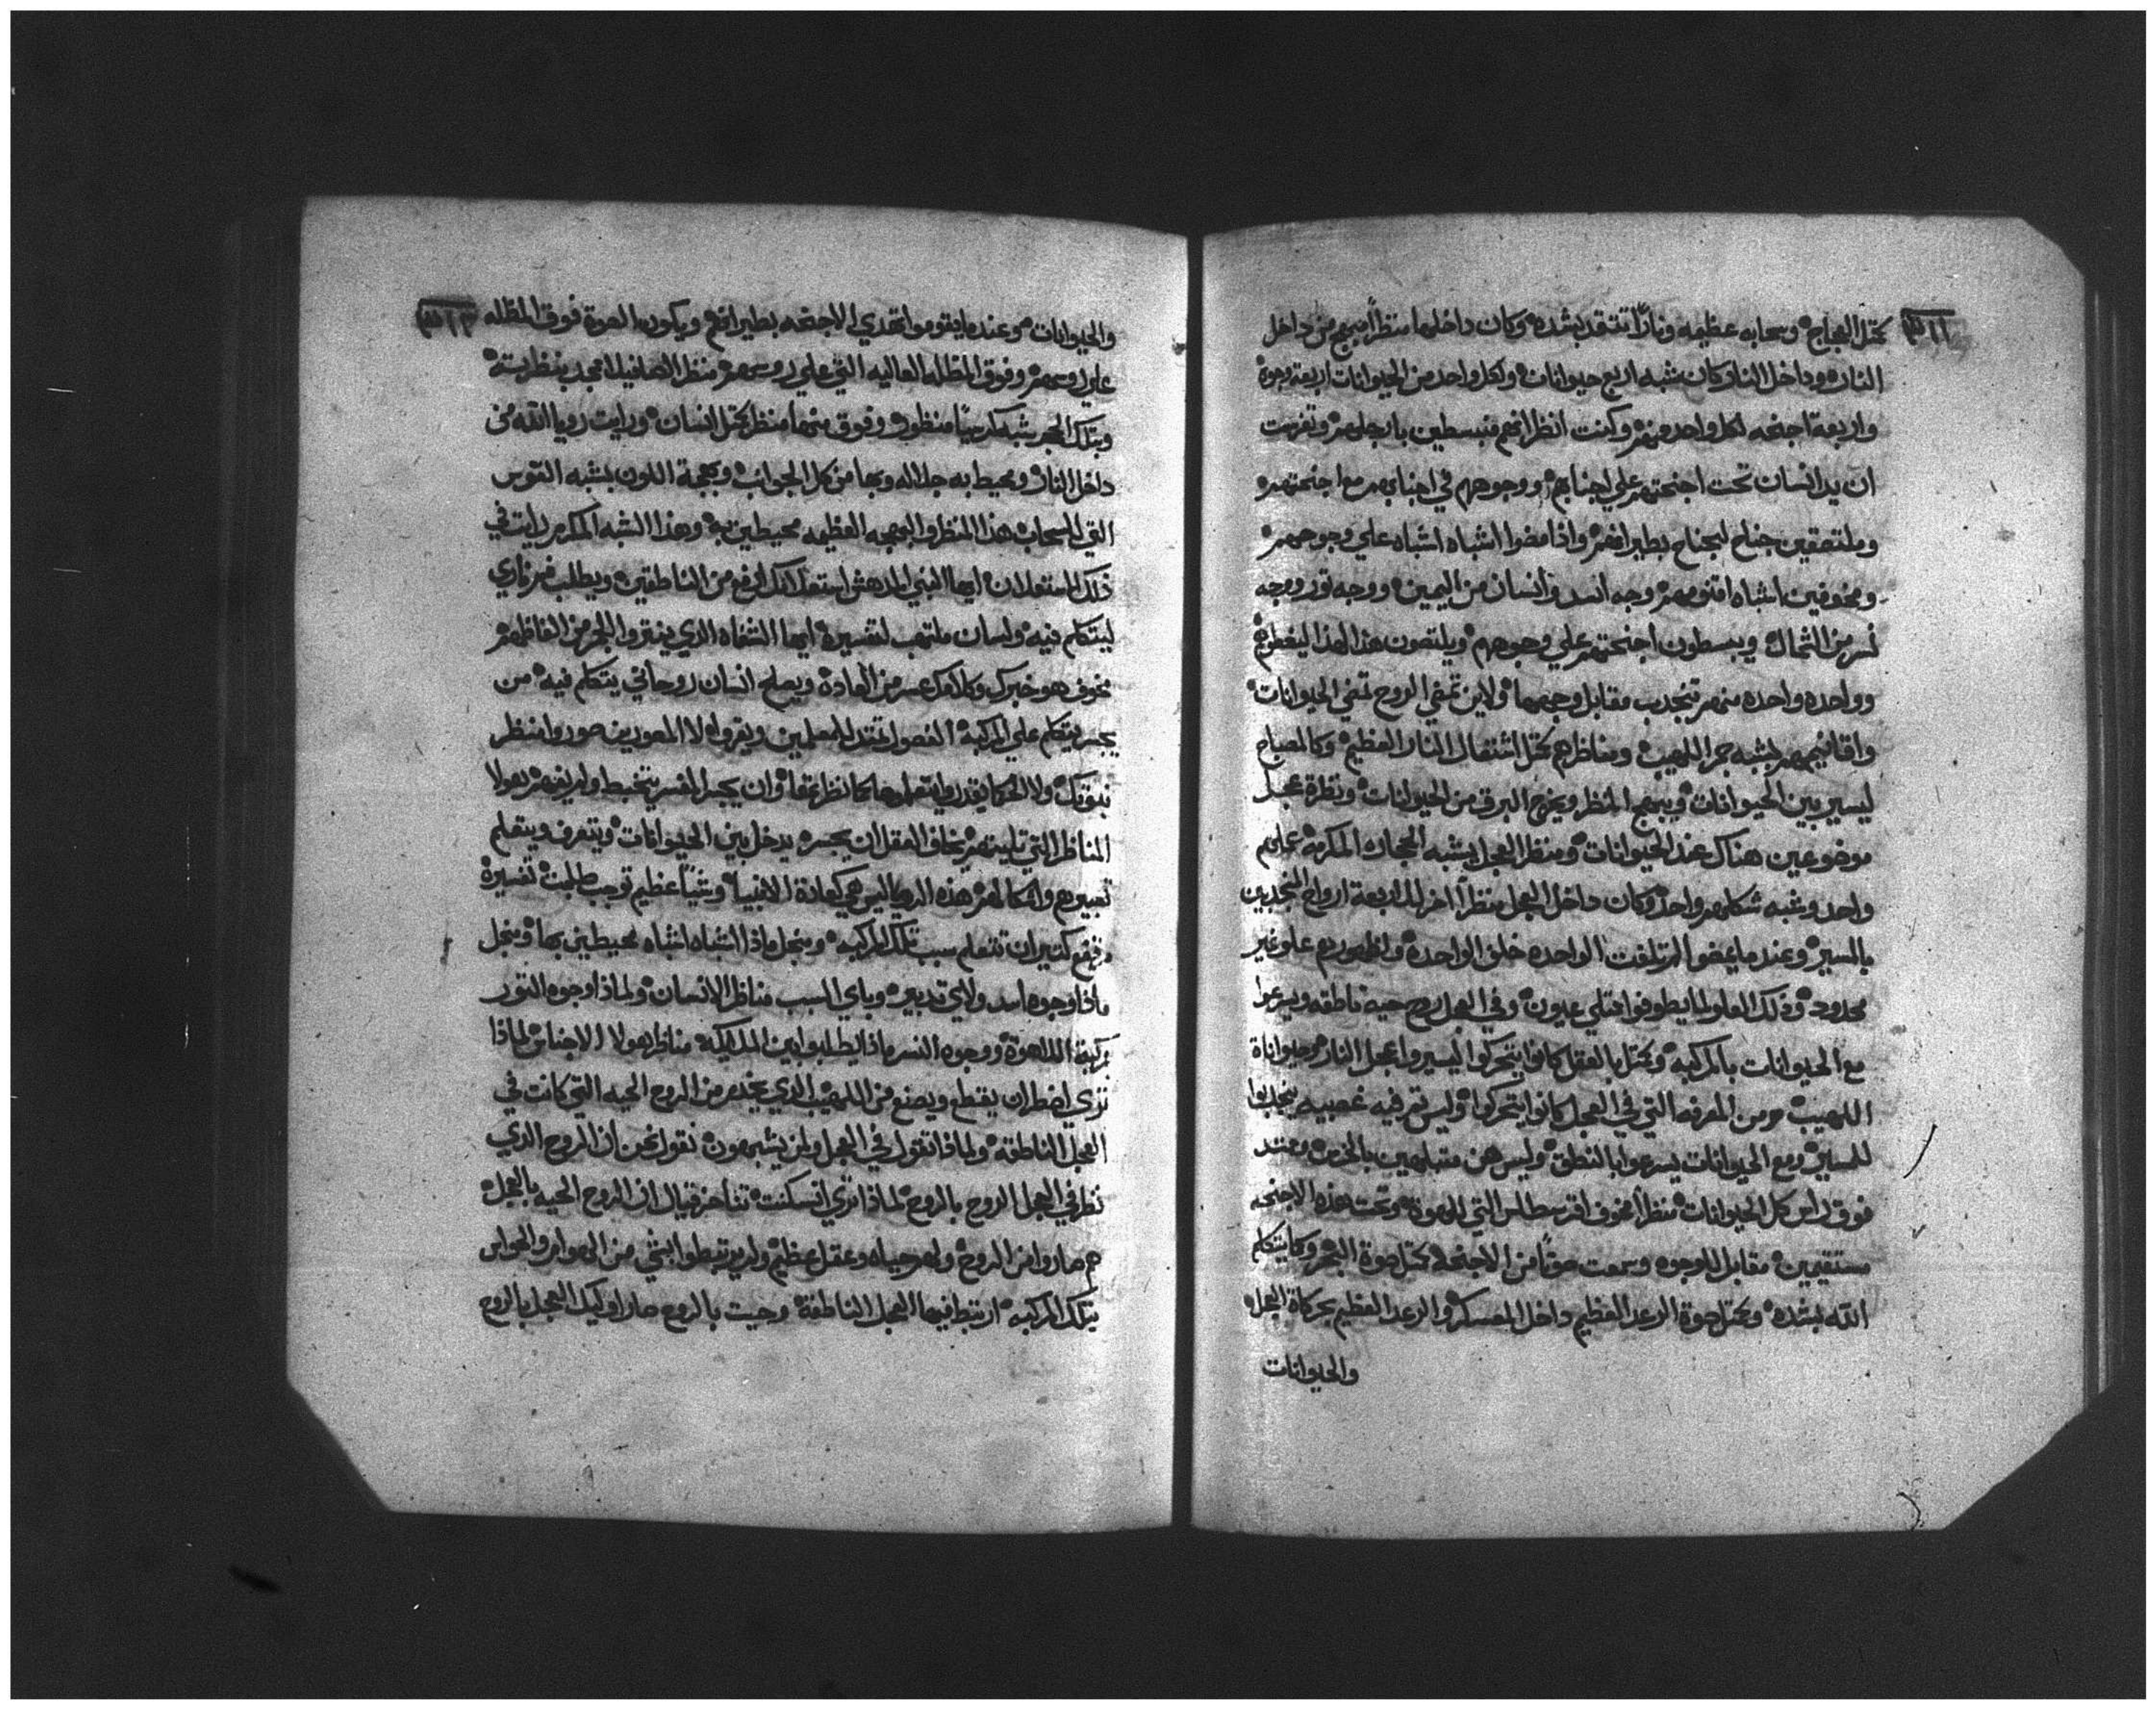 كمثل العجاج وسحابه عظيمه ونارًا تتقد بشده وكان داخلها منظرًا مبهج من داخل
النار وداخل النار كان شبه اربع حيوانات ولكل واحد من الحيوانات اربعة وجوه
واربعة اجنحه لكل واحد منهم وكنت انظر انهم منبسطين بارجلهم وتفرست
ان يد انسان تحت اجنحتهم علي اجنابهم ووجوههم في اجنابهم مع اجنحتهم
وملتصقين جناح لجناح بطيرانهم واذا مضوا اشباه اشباه علي وجوههم
ومخوفين اشباه اقنومهم وجه اسد وانسان من اليمين ووجه تور ووجه
نسر من الشمال ويبسطون اجنحتهم علي وجوههم ويلتصون هذا لهذا ليغطوهم
وواحده واحده منهم تنجدب مقابل وجهها ولاين تمضي الروح تمضي الحيوانات
واقانيمهم يشبه جمر اللهيب ومناظرهم كمثل اشتعال النار العظيم وكالمصباح
ليسير بين الحيوانات ويبهج المنظر ويخرج البرق من الحيوانات ونظرة عجل
موضوعين هناك عند الحيوانات ومنظر العجل يشبه الحجار المكرمه عليهم
واحد وشبه شكلهم واحد وكان داخل العجل منظرًا اخر للاربعة ارواح المنجدبين
بالمسير وعندما يمضوا لم تلفت الواحده خلف الواحده ولظهورهم علو غير
محدود وذلك العلو لما يطوفوا ممتلي عيون وفي العجل روح حيه ناطقه ويسرعوا
مع الحيوانات بالمركبه وكمثل بالعقل كانوا يتحركوا ليسيروا عجل النار وحيواناة
اللهيب هم من المعرفه التي في العجل كانوا يتحركوا وليس تم فيه غصبيه ينجدبوا
للمسير ومع الحيوانات يسرعوا بالنطق وليس هن متبلهين بالخرس وممتد
فوق راس كل الحيوانات منظرًا مخوف اقرسطالس التي للهوة وتحت هذه الاجنحه
مستقيمين مقابل للوجوه وسمعت صوتًا من الاجنحه كمثل صوة البحر وكما يتكلم
الله بشده وكمثل صوة الرعد العظيم داخل المعسكر والرعد العظيم بحركاة العجل
والحيوانات
والحيوانات وعندما يقوموا تهدي الاجنحه بطيرانهم ويكون الصوة فوق المظله
علي روسهم وفوق المظله العاليه التي علي روسهم منظر الاسمانيلا امجد بنظراته
وبتلك الحجر شبه كرسيًا منظور وفوق منها منظر كمثل انسان ورايت رويا الله من
داخل النار ومحيط به جلاله وبها من كل الجوانب وبهجة اللون يشبه القوس
التي بالسحاب هذا المنظر والبهجه العظيمه محيطين به وهذا الشبه المكرم رايت في
ذلك استعلان ايها النبي المدهش استعلانك ارفع من الناطقين ويطلب فم ناري
ليتكلم فيه ولسان ملتهب لتفسيره ايها الشفاه الذي ينقروا الجمر من الفاظهم
مخوف هو خبرك وكلامك عسر من العادة ويصلح انسان روحاني يتكلم فيه من
يجسر يتكلم علي المركبه الفصول تمتد للمعلمين ويقروا لا المصورين صوروا منظر
نبوتك ولا الحكما يقدروا يتعلموها كما نظرتها وان يجسر المفسر يتخبط ولم يفهم بهولا
المناظر التي تليتهم يخاف العقل ان يجسر يدخل بين الحيوانات ويتعرف ويتعلم
تعبيرهم واشكالهم هذه الرويا ليس هي كعادة الانبيا وشيًا عظيم توجب طلبت تفسيره
كتير ان تتعلم سبب تلك المركبه ومنجل ماذا اشباه اشباه محيطين بها ومنجل
ماذا وجوه اسد ولاي تدبير وباي السبب مناظر الانسان ولماذا وجوه التور
بركبة اللاهوة ووجوه النسر ماذا يطلبوا بين الملايكه مناظر هولا الاجناس لماذا
تري اضطر ان يقتطع ويصنع من اللهيب الذي يخدم من الروح الحيه التي كانت في
العجل الناطقه ولماذا تقول في العجل ولمن يشبهون نقول نحن ان الروح الذي
نظر في العجل الروح بالروح لماذا تري انسكنت تفاخر قيال ان الروح الحيه بالعجل
هم صاروا من الروح ولهم حياه وعقل عظيم ولم يرتبطوا بشي من الهوام والحواس
بتلك المركبه ارتبط فيها العجل الناطقة وحيت بالروح صار اوليك العجل بالروح